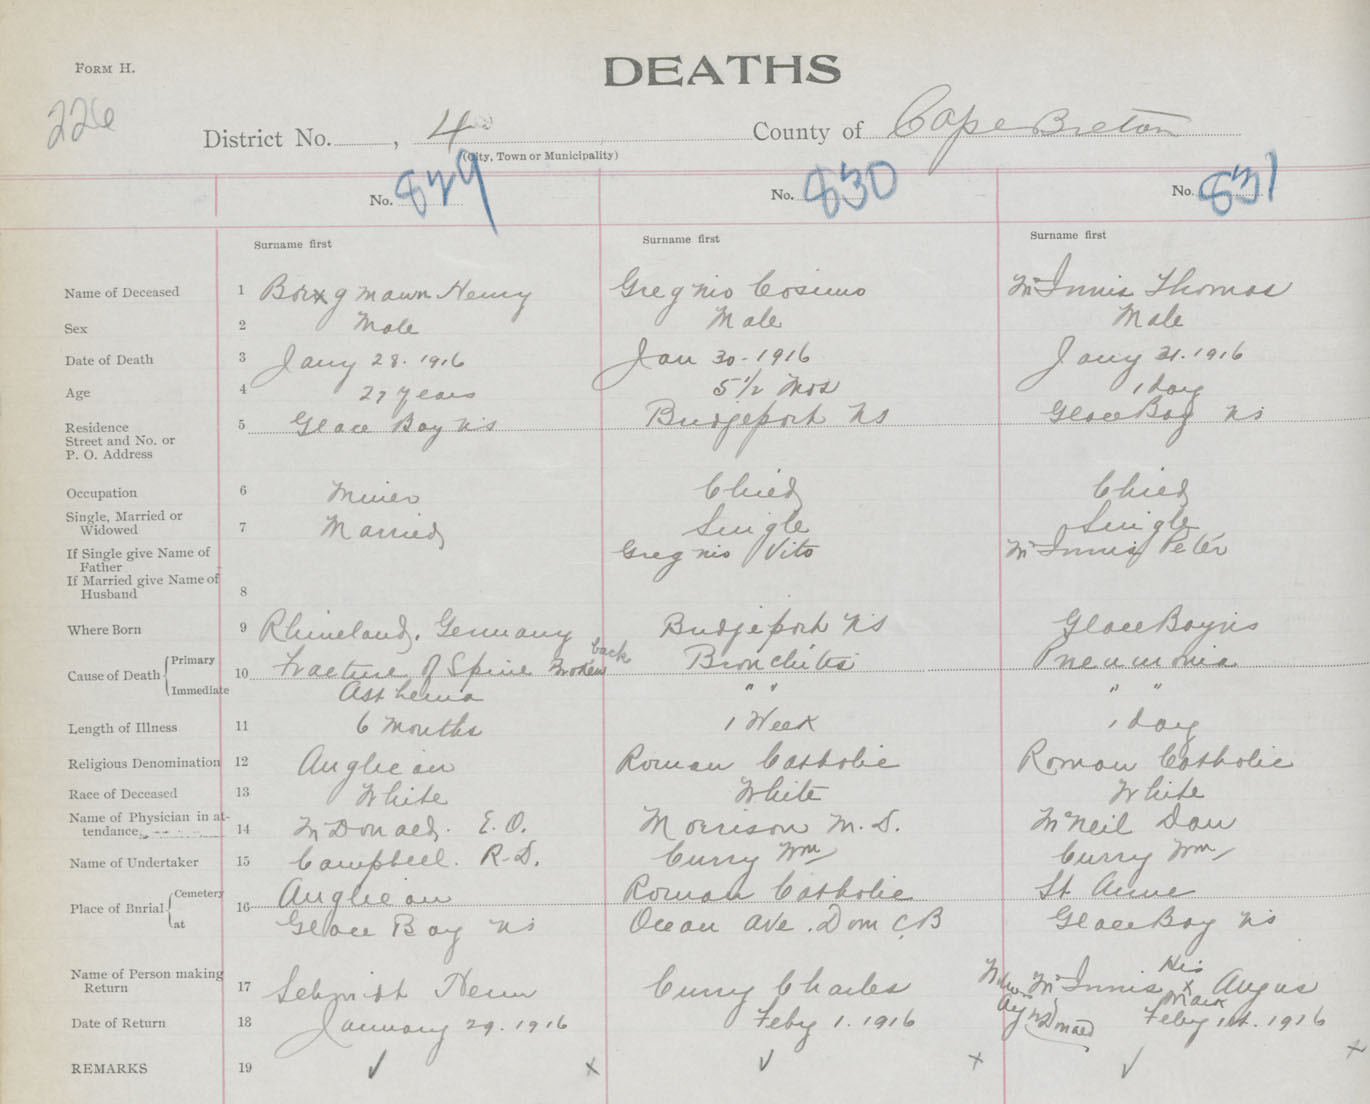 FORM H.
DEATHS
226
District No. , 4 County of Cape Breton
(City, Town or Municipality)
No. 829 No. 830 No. 831
Surname first Surname first Surname first
Name of Deceased 1 Henry Gregnio Cosimo McInnis Thomas
Sex 2 Male Male Male
Date of Death 3 Jany 28. 1916 Jan 30-1916 Jany 31. 1916
Age 4 27 years 5 1/2 Mos 1 day
Residence 5 Glace Bay NS Bridgeport NS Glace Bay NS
Street and No. or
P. O. Address
Occupation 6 Miner Child Child
Single, Married or
Widowed 7 Married Single Single
If Single give Name of
Father Gregnio Vito McInnis Peter
If Married give Name of
Husband 8
Where Born 9 Rhineland, Germany Bridgeport NS Glace Bay NS
Cause of Death { Primary 10 Fracture of Spine Broken back Bronchitis Pneumonia
Immediate Asthema " " " "
Length of Illness 11 6 Months 1 Week 1 day
Religious Denomination 12 Anglican Roman Catholic Roman Catholic
Race of Deceased 13 White White White
Name of Physician in at-
tendance 14 McDonald. E.O. Morrison M.D. McNeil Dan
Name of Undertaker 15 Campbell. R.D. Curry Wm Curry Wm
Place of Burial { Cemetery 16 Anglican Roman Catholic St Anne
at Glace Bay NS Ocean Ave. Dom C.B Glace Bay NS
Name of Person making
Return 17 Schmidt Curry Charles McInnis His X Mark Angus
Date of Return 18 January 29. 1916 Feby 1. 1916 McDonald Feby 1st. 1916
REMARKS 19 ✓ x ✓ x ✓ x